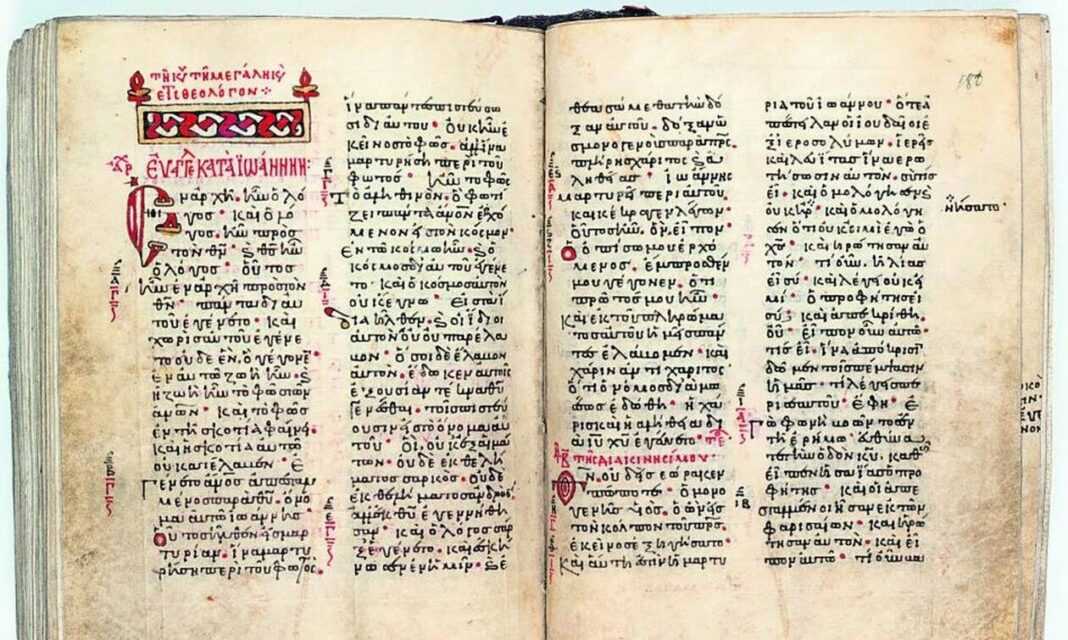 τῆ κυ τῆ μεγάλη κυ
θεολόγον
ΕΥΑΓΓΕ ΚΑΤΑ ΙΩΑΝΝΗΝ:
Ἐν ἀρχῆ ἦν ὁ λό
γος· καὶ ὁ λό
γος. ἦν πρὸς
τὸν θν· κ θς ἦν
ὁ λόγος· οὗτος
ἦν ἐν ἀρχῆ πρὸς τὸν
θν· πάντα δι αυ
τοῦ ἐγένετο· καὶ
χωρὶς αυτοῦ ἐγένε
το οὐδὲ ἕν. ὃ γέγονε
ἐν αυτῶ ζωὴ ἦν. κ
ἡ ζωὴ ἦν τὸ φῶς τῶν
ἀνων· καὶ τὸ φῶς
ἐν τῆ σκοτία φαίνει·
καὶ ἡ σκοτία αυτὸ
οὐ κατέλαβεν· ἐ
γένετο ἀνος ἀπεσταλ
μένος παρὰ θυ· ὄνο
μα αυτῶ ἰωάννης·
οὗτος ἦλθεν εἰς μαρ
τυρίαν. ἵνα μαρτυ
ρήση περὶ τοῦ φωτός.
ἵνα πάντες πιστεύσω
σι δι αυτοῦ· οὐκ ἦν ἐ
κεῖνος τὸ φῶς. ἀλλ ἵνα
μαρτυρήση περὶ τοῦ
φωτός· ἦν τὸ φῶς
τὸ ἀληθινόν. ὃ φωτί
ζει πάντα ἀνον ἐρχό
μενον εἰς τὸν κόσμον·
Ἐν τῶ κόσμω ἦν. κ ὁ
κόσμος δι αυτοῦ ἐγένε
το· καὶ ὁ κόσμος αυτὸν
οὐκ ἔγνω· Εἰς τὰ ἴ
δια ἦλθεν. κ οἱ ἴδιοι
αυτὸν οὐ παρέλα
βον· ὅσοι δὲ ἔλαβον
αυτόν. ἔδωκεν αυτοῖς
ἐξουσίαν τέκνα θυ
γενέσθαι· τοῖς πιστεύ
ουσιν εἰς τὸ ὄνομα αυ
τοῦ· οἳ οὐκ ἐξ αἱμά
των· οὐδὲ ἐκ θελή
ματος σαρκός· οὐδὲ
ἐκ θελήματος ἀνδρός.
ἀλλ ἐκ θυ ἐγεννήθη
σαν· καὶ ὁ λόγος σὰρ
ξ ἐγένετο· καὶ ἐσκή
νωσεν ἐν ἡμῖν· κ ἐ
θεασάμεθα τὴν δό
ξαν αυτοῦ· δόξαν ὡ
ς μονογενοῦς παρὰ πρς·
πλήρης χάριτος κ ἀ
ληθείας· ἰωάννης
μαρτυρεῖ περὶ αυτοῦ.
καὶ κέκραγεν λέγων·
οὗτος ἦν. ὃν εἶπον·
ὁ ὀπίσω μου ἐρχό
μενος. ἔμπροσθέν
μου γέγονεν. ὅτι
πρῶτός μου ἦν·
Καὶ ἐκ τοῦ πληρώμα
τος αυτοῦ ἡμεῖς πάν
τες ἐλάβομεν· καὶ
χάριν ἀντὶ χάριτος·
ὅτι ὁ νόμος διὰ μω
σέως ἐδόθη· ἡ χά
ρις καὶ ἡ ἀλήθεια δι
ὰ ιυ χυ ἐγένετο· τε
τῆ διακινησίμου·
Θν οὐδεὶς ἑώρακεν
πώποτε· ὁ μονο
γενὴς υἱός. ὁ ὢν εἰς
τὸν κόλπον τοῦ πρς.
ἐκεῖνος ἐξηγήσατο·
Καὶ αὕτη ἐστὶν ἡ μαρτυ
180
ρία τοῦ ἰωάννου· ὅτε ἀ
πέστειλαν οἱ ἰουδαῖοι ἐ
ξ ἱεροσολύμων· ἱερεῖς
καὶ λευίτας ἵνα ἐρω
τήσωσιν αυτόν. σὺ τίς
εἶ· καὶ ὡμολόγησεν κ
οὐκ ἠρ· καὶ ὡμολόγη
σεν ὅτι οὐκ εἰμὶ ἐγὼ ὁ
χς· καὶ ἠρώτησαν αυ
τόν· τί οὖν. ἠλίας
εἶ σύ· καὶ λέγει οὐκ εἰ
μί· ὁ προφήτης εἶ
σύ; καὶ ἀπεκρίθη.
οὔ· εἶπον οὖν αυτῶ·
τίς εἶ· ἵνα ἀπόκρισι
δῶμεν τοῖς πέμψασιν
ἡμᾶς· τί λέγεις πε
ρὶ σεαυτοῦ· ἔφη· ἐ
γὼ φωνὴ βοῶντος ἐν
τῆ ἐρήμω· εὐθύνα
τε τὴν ὁδὸν κυ. καθὼ
ς εἶπεν ἡσαΐας ὁ προ
φήτης· καὶ οἱ ἀπε
σταλμένοι ἦσαν ἐκ τῶν
φαρισαίων· καὶ ἠρώ
τησαν αυτόν· καὶ εἶ
πον αυτῶ· τί οὖν βα
νήσατο·